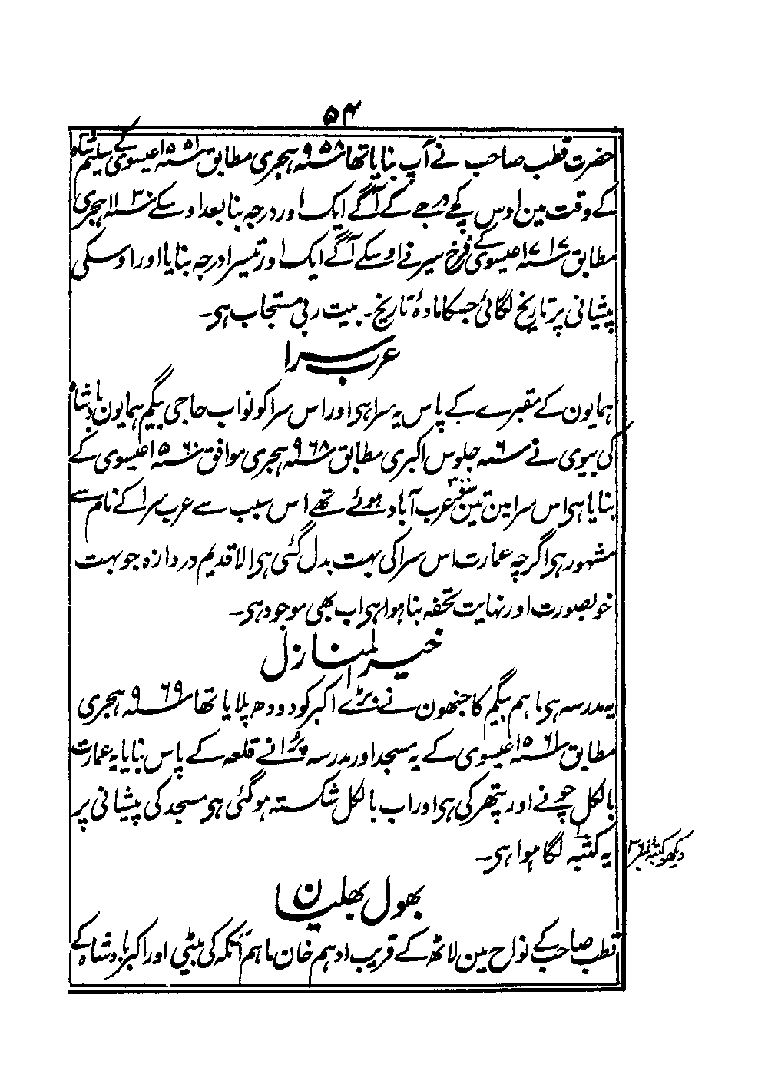 ۵۴
حضرت قطب صاحب نے آپ بنایا تھا سنہ ۹۵۸ ہجری مطابق سنہ ۱۵۵۱ عیسوی کے سلیم شاہ
کے وقت مین اوس کچے درجے کے آگے ایک اور درجہ بنا بعد اوسکے سنہ ۱۱۳۰ ہجری
مطابق سنہ ۱۷۱۷ عیسوی کے فرخ سیر نے اوسکے آگے ایک اور تیسرا درجہ بنایا اور اوسکی
پیشانی پر تاریخ لگائی جسکا مادۂ تاریخ۔ بیت ربی مستجاب ہی۔
عرب سرا
ہمایون کے مقبرے کے پاس یہ سرا ہی اور اس سرا کو نواب حاجی بیگم ہمایون بادشاہ
کی بیوی نے سنہ ۶ جلوس اکبری مطابق سنہ ۹۶۸ ہجری موافق سنہ ۱۵۶۰ عیسوی کے
بنایا ہی اس سرا مین تین سو عرب آباد ہوئے تھے اس سبب سے عرب سرا کے نام سے
مشہور ہی اگرچہ عمارت اس سرا کی بہت بدل گئی ہی الا قدیم دروازہ جو بہت
خوبصورت اور نہایت تحفہ بنا ہوا ہی اب بھی موجود ہی۔
خیر المنازل
یہ مدرسہ ہی ماہم بیگم کا جنھون نے اکبر کو دودھ پلایا تھا سنہ ۹۶۹ ہجری
مطابق سنہ ۱۵۶۱ عیسوی کے یہ مسجد اور مدرسہ پرانے قلعہ کے پاس بنایا یہ عمارت
بالکل چونے اور پتھر کی ہی اور اب بالکل شکستہ ہو گئی ہی مسجد کی پیشانی پر
یہ کتبہ لگا ہوا ہی۔
دیکھو کتبہ نمبر
بھول بھلیان
قطب صاحب کے نواح مین لاٹھ کے قریب ادہم خان ماہم آتکہ کی بیٹی اور اکبر بادشاہ کے